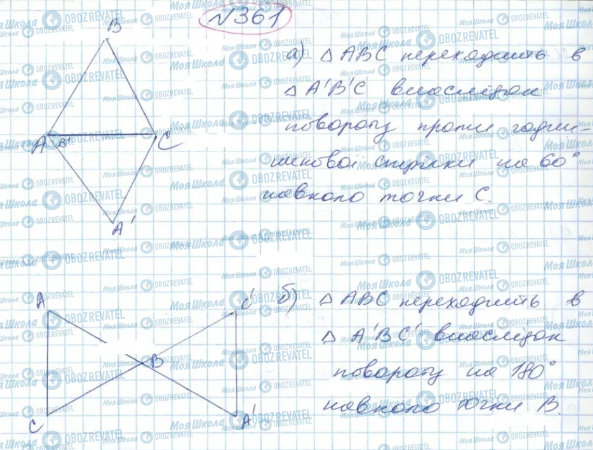 №361
B
а) △ABC переходить в
△A'B'C внаслідок
повороту проти годин-
никової стрілки на 60°
навколо точки C.
A B' C
A'
A C' б) △ABC переходить в
△A'BC' внаслідок
повороту на 180°
навколо точки B
B
C A'
Моя Школа OBOZREVATEL